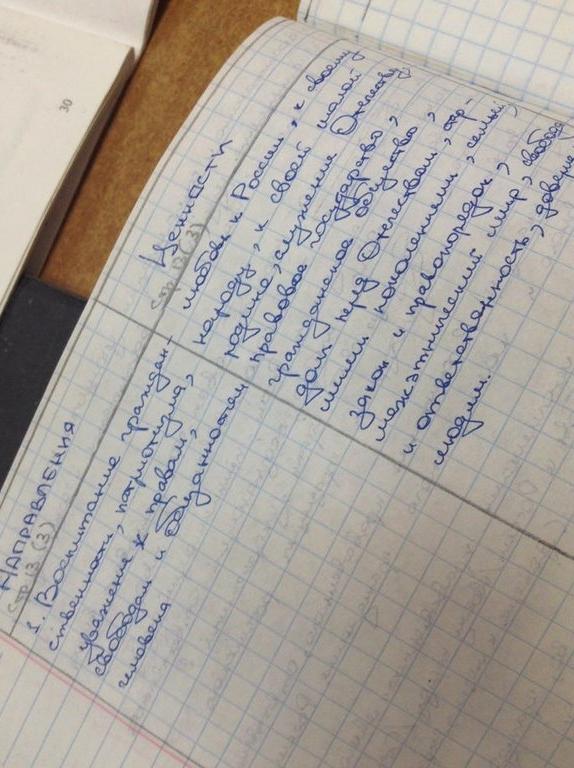 30
НАПРАВЛЕНИЯ
стр 13 (3)
1. Воспитание граждан-
ственности, патриотизма,
уважение к правам,
свободам и обязанностям
человека
Ценности
стр 13 (3)
любовь к России, к своему
народу, к своей малой
родине, служение Отечеству,
правовое государство,
гражданское общество,
долг перед Отечеством, стр-
шими поколениями, семьёй,
закон и правопорядок,
межэтнический мир, свобода
и ответственность, доверие
людям.